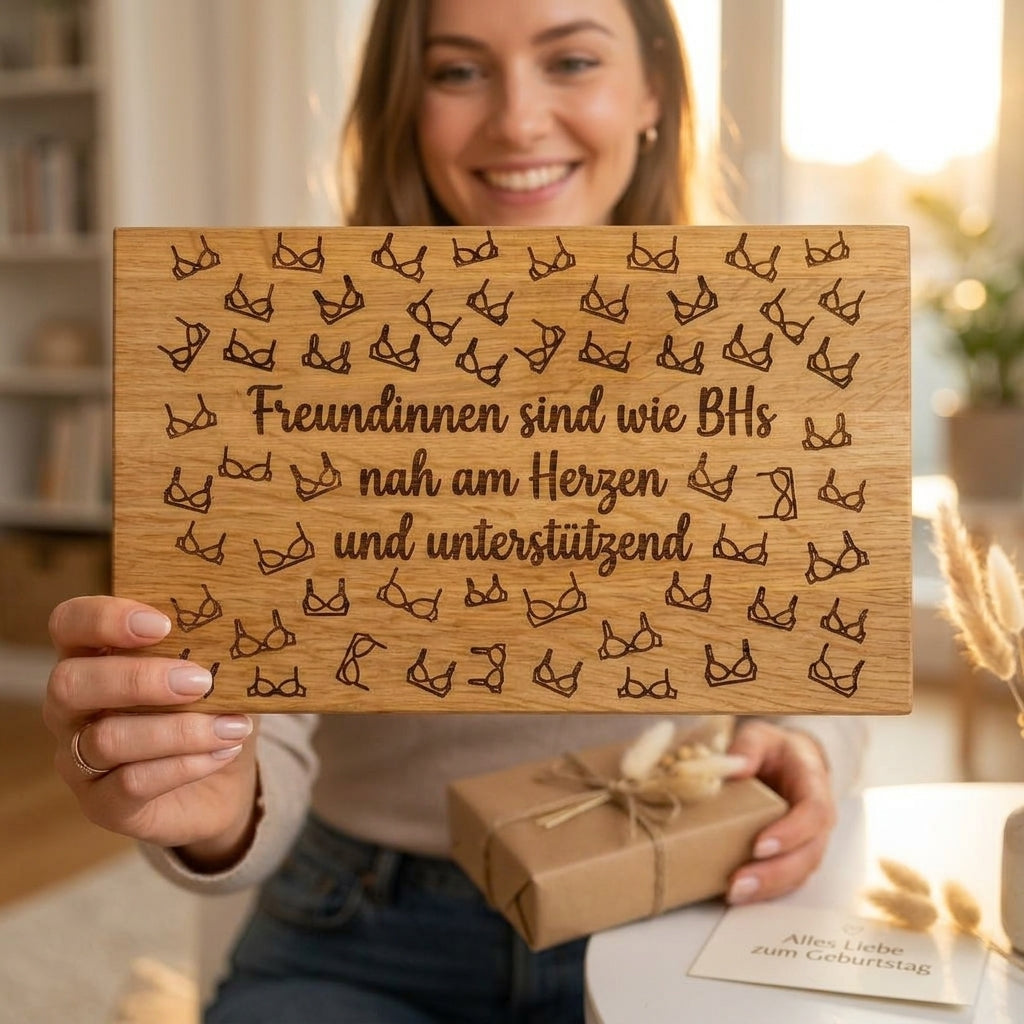 Freundinnen sind wie BHs
nah am Herzen
und unterstützend
Alles Liebe
zum Geburtstag